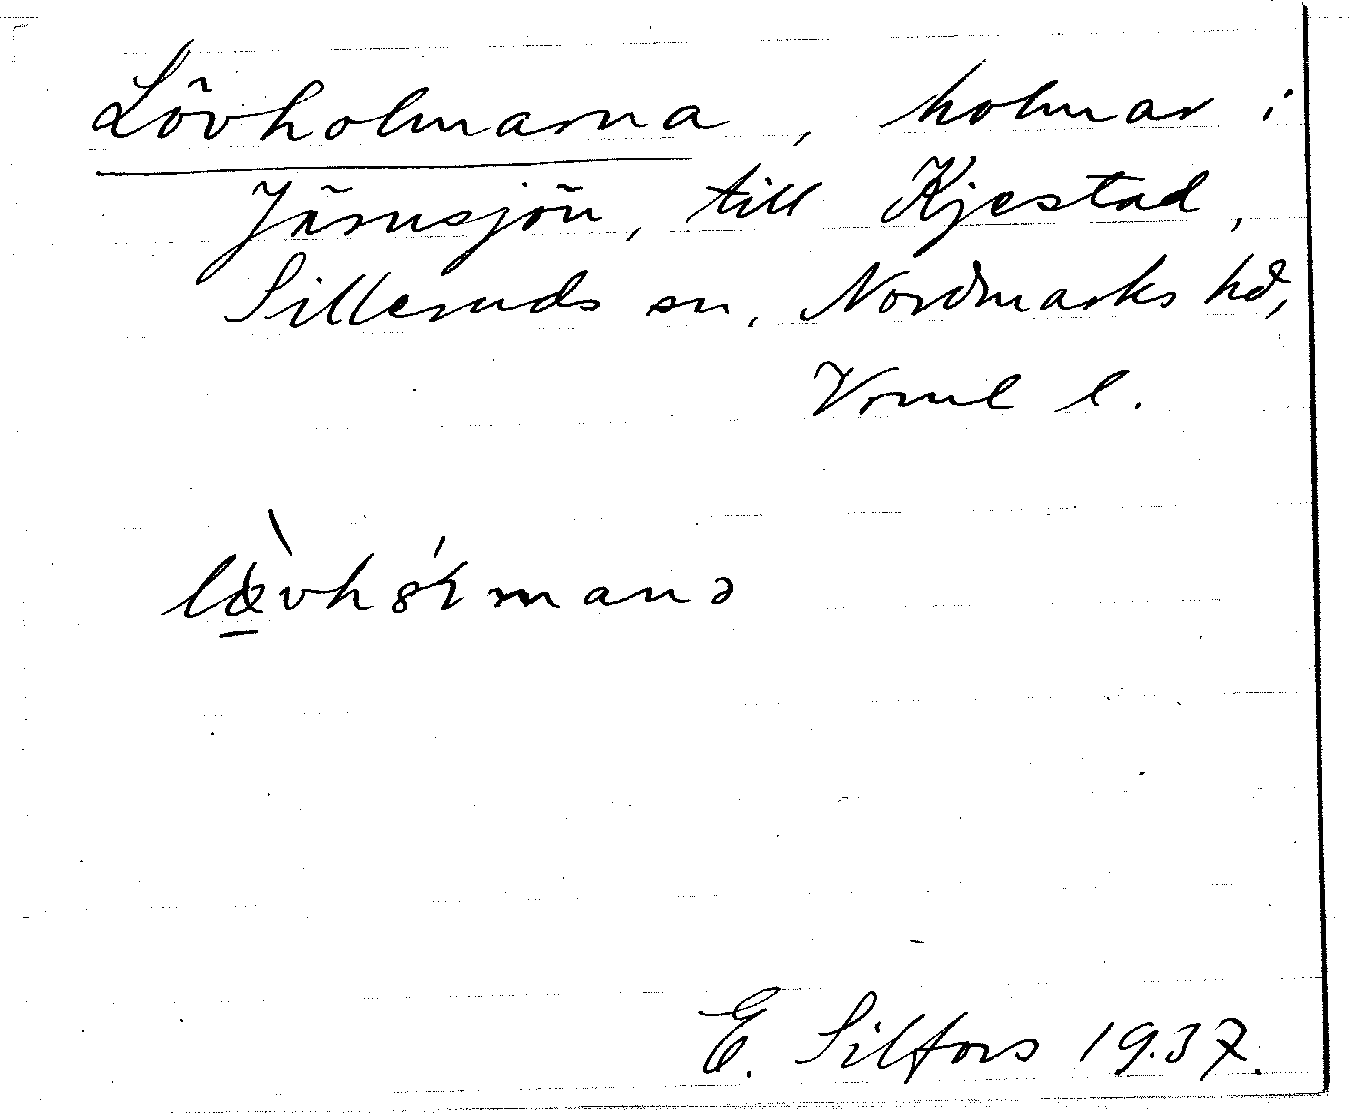 Lövholmarna, holmar i
Järnsjön, till Kjestad,
Silleruds sn, Nordmarks hd,
Vrml l.
E. Silfors 1937.